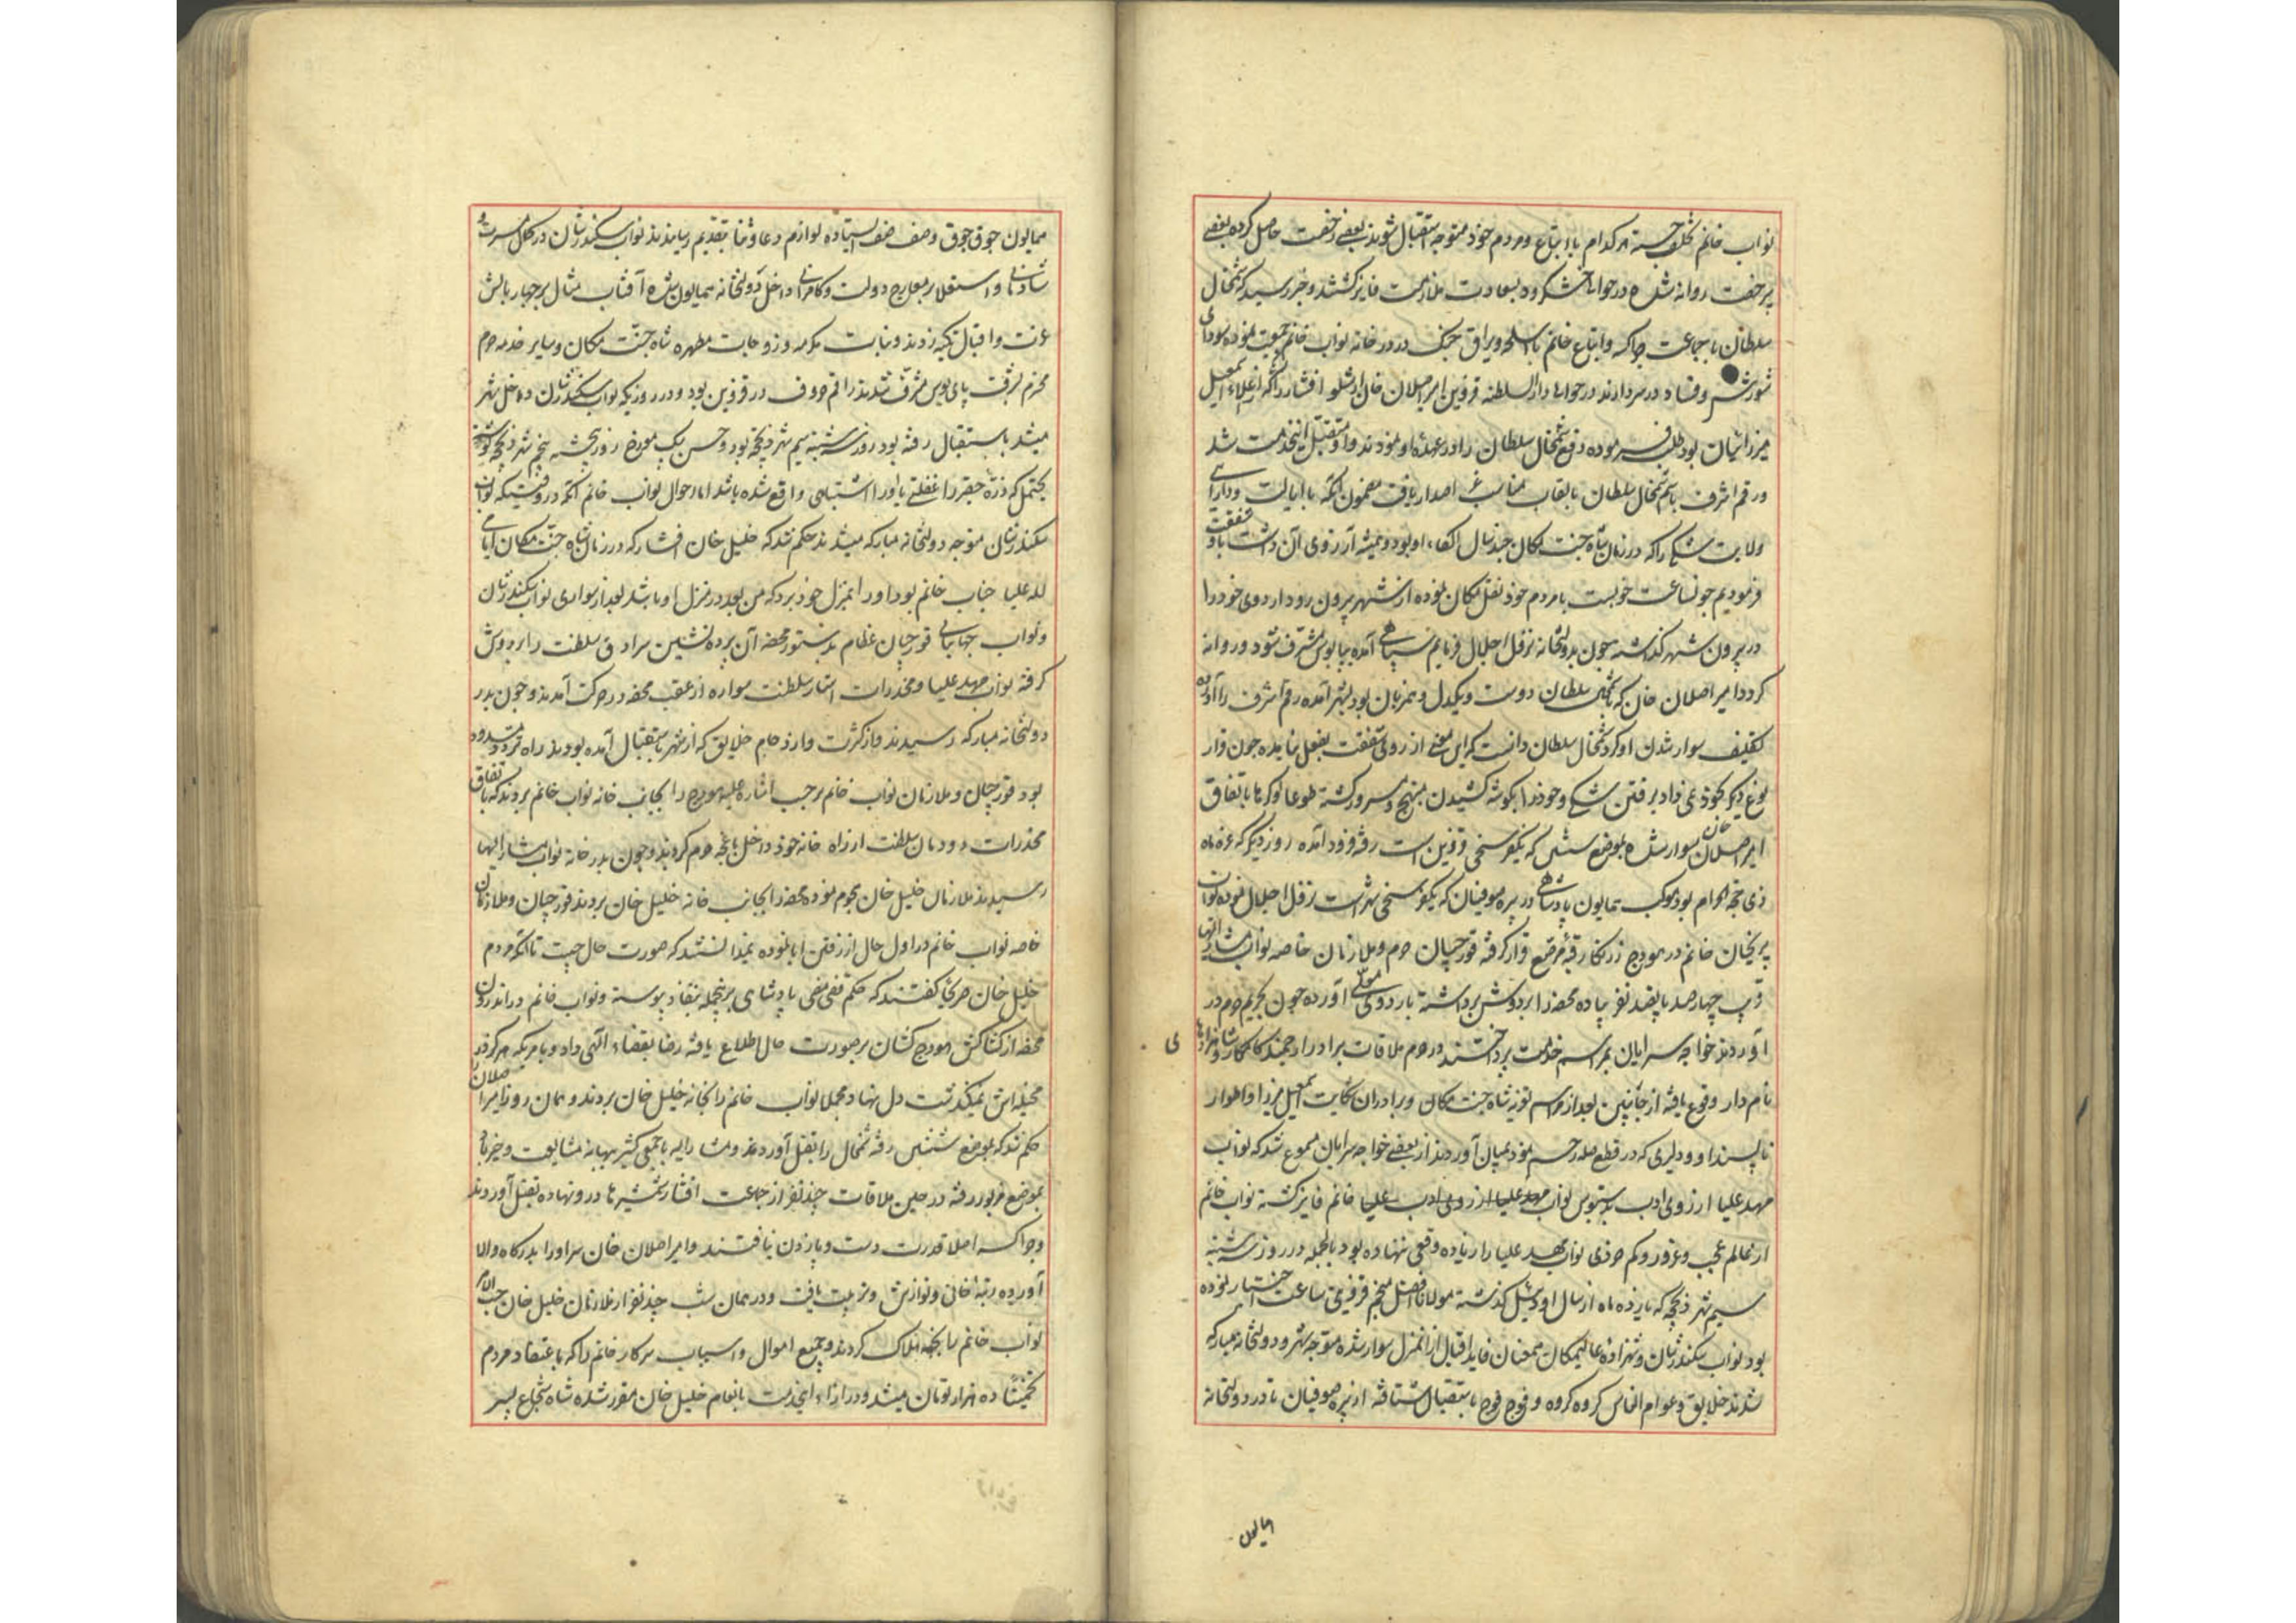 نواب خانم تخلف جسته هر کدام با اتباع و مردم خود متوجه استقبال شوند بعضی رخصت حاصل کرده بعضی
بی رخصت روانه شده در حوالی خشکرود بسعادت ملازمت فایز گشتند و خبر رسید که شمخال
سلطان با جماعت چراکسه و اتباع خانم با اسلحه و یراق جنگ در در خانه نواب خانم جمعیت نموده سودای
شورش و فساد در سر دارند در حوالی دار السلطنه قزوین امیر اصلان خان ارشلو افشار را که از عظماء اسمعیل
میرزائیان بود طلب فرموده دفع شمخال سلطان را در عهده او نمودند و او متقبل اینخدمت شد
و رقم اشرف باسم شمخال سلطان بالقاب مناسب اصدار یافت مضمون آنکه ما ایالت و دارایی
ولایت شکی را که در زمان شاه جنت مکان چند سال الکاء او بود و همیشه آرزوی آن داشت باو شفقت
فرمودیم چون ساعت خوبست با مردم خود نقل مکان نموده از شهر بیرون رود اردوی خود را
در بیرون شهر گذاشته چون بدولتخانه نزول اجلال فرمایم سپاهی آمده بپابوس مشرف شود و روانه
گردد امیر اصلان خان که با شمخال سلطان دوست و یکدل و همزبان بود بشهر آمده رقم اشرف را آورده
تکلیف سوار شدن او کرد شمخال سلطان دانست که این معنی از روی شفقت بفعل نیامده چون قرار
دیگر بخود نمی داد برفتن شکی و خود را بگوشه کشیدن مبتهج و مسرور گشته طوعا و کرها باتفاق
امیر اصلان خان سوار شده بموضع شتنین که یکفرسخی قزوین است رفته فرود آمده روز دیگر که غره ماه
ذی حجة الحرام بود موکب همایون پادشاهی در پره صوفیان که یکفرسخی شهر است نزول اجلال نموده نواب
پریخان خانم در هودج زرنگار قبه مرصع قرار گرفته قورچیان حرم و ملازمان خاصه نواب مشار الیها
قریب چهارصد پانصد نفر پیاده محفه را بر دوش برداشته باردوی معلی آورده چون بحریم حرم در
آوردند خواجه سرایان بمراسم خدمت پرداختند در حرم ملاقات برادر ارجمند کامکار و شاهزادهای
نامدار وقوع یافته از جانبین بعد از مراسم تعزیه شاه جنت مکان و برادران شکایت اسمعیل میرزا و اطوار
ناپسند او و دلیری که در قطع صله رحم نمود بمیان آوردند از بعضی خواجه سرایان مسموع شد که نواب
مهد علیا از روی ادب بدستبوس نواب مهد علیا از روی ادب علیا خانم فایز گشته نواب خانم
از عالم عجب و غرور و کم خردی نواب مهد علیا را زیاده وقعی ننهاده بود بالجمله در روز سه شنبه
سیم شهر ذیحجه که یازده ماه از سال اودئیل گذشته مولانا افضل منجم قزوینی ساعت اختیار نموده
بود نواب سکندرشان و شهزاده عالیمکان همعنان فایدا اقبال از آنمنزل سوار شده متوجه شهر و دولتخانه مبارکه
شدند خلایق و عوام الناس گروه گروه و فوج فوج باستقبال شتافته از پره صوفیان تا در دولتخانه
همایون
همایون جوق جوق و صف صف ایستاده لوازم دعا و ثنا بتقدیم رسانیدند نواب سکندرشان در کمال مسرت و
شادمانی و استقلال بر معارج دولت و کامرانی داخل دولتخانه همایون شده آفتاب مثال بر چهار بالش
عزت و اقبال تکیه زدند و بنات مکرمه و زوجات مطهره شاه جنت مکان و سایر خدمه حرم
محترم بشرف پای بوس مشرف شدند راقم حروف در قزوین بود و در روزیکه نواب سکندرشان داخل شهر
میشد باستقبال رفته بود روز سه شنبه سیم شهر ذیحجه بود و حسن بیک مورخ روز پنجشنبه پنجم شهر ذیحجه نوشته
یحتمل که ذره حقیر را غفلتی یا او را اشتباهی واقع شده باشد اما احوال نواب خانم آنکه در وقتیکه نواب
سکندرشان متوجه دولتخانه مبارکه میشدند حکم شد که خلیل خان افشار که در زمان شاه جنت مکان اتابای
لله علیا جناب خانم بود او را بمنزل خود برد که من بعد در منزل او باشد بعد از سواری نواب سکندرشان
و نواب جهانبانی قورچیان عظام بدستور محفه آن پرده نشین سرادق سلطنت را بر دوش
گرفته نواب مهد علیا و مخدرات استار سلطنت سواره از عقب محفه در حرکت آمدند و چون بدر
دولتخانه مبارکه رسیدند و از کثرت و ازدحام خلایق که از شهر باستقبال آمده بودند راه تردد مسدود
بود قورچیان و ملازمان نواب خانم بر حسب اشاره علیه هودج را بجانب خانه نواب خانم بردند که باتفاق
مخدرات دودمان سلطنت از راه خانه خود داخل باغچه حرم گردند و چون بدر خانه نواب مشار الیها
رسیدند ملازمان خلیل خان هجوم نموده محفه را بجانب خانه خلیل خان بردند قورچیان و ملازمان
خاصه نواب خانم در اول حال از رفتن ابا نموده نمیدانستند که صورت حال چیست تا آنکه مردم
خلیل خان صریحا گفتند که حکم قضی مضی پادشاهی برینجمله بنفاذ پیوسته و نواب خانم در اندرون
محفه از کشاکش هودج کشان بر صورت حال اطلاع یافته رضا بقضاء الهی داد و بامریکه هرگز در
مخیله اش نمیگذشت دل نهاد مجملا نواب خانم را بخانه خلیل خان بردند و همان روز امیر اصلان را
حکم شد که بموضع شتنین رفته شمخال را بقتل آوردند و مشار الیه با جمعی کثیر ببهانه مشایعت و خیرباد
بموضع مزبور رفته در حین ملاقات چند نفر از جماعت افشار شمشیرها درو نهاده بقتل آوردند
و چراکسه اصلا قدرت دست و پا زدن نیافتند و امیر اصلان خان سر او را بدرگاه والا
آورده رتبه خانی و نوازش و تربیت یافت و در همان شب چند نفر از ملازمان خلیل خان حسب الامر
نواب خانم را بخفه هلاک کردند و جمیع اموال و اسباب سرکار خانم را که باعتقاد مردم
تخمینا ده هزار تومان میشد و در ازاء اینخدمت بانعام خلیل خان مقرر شده شاه شجاع پسر